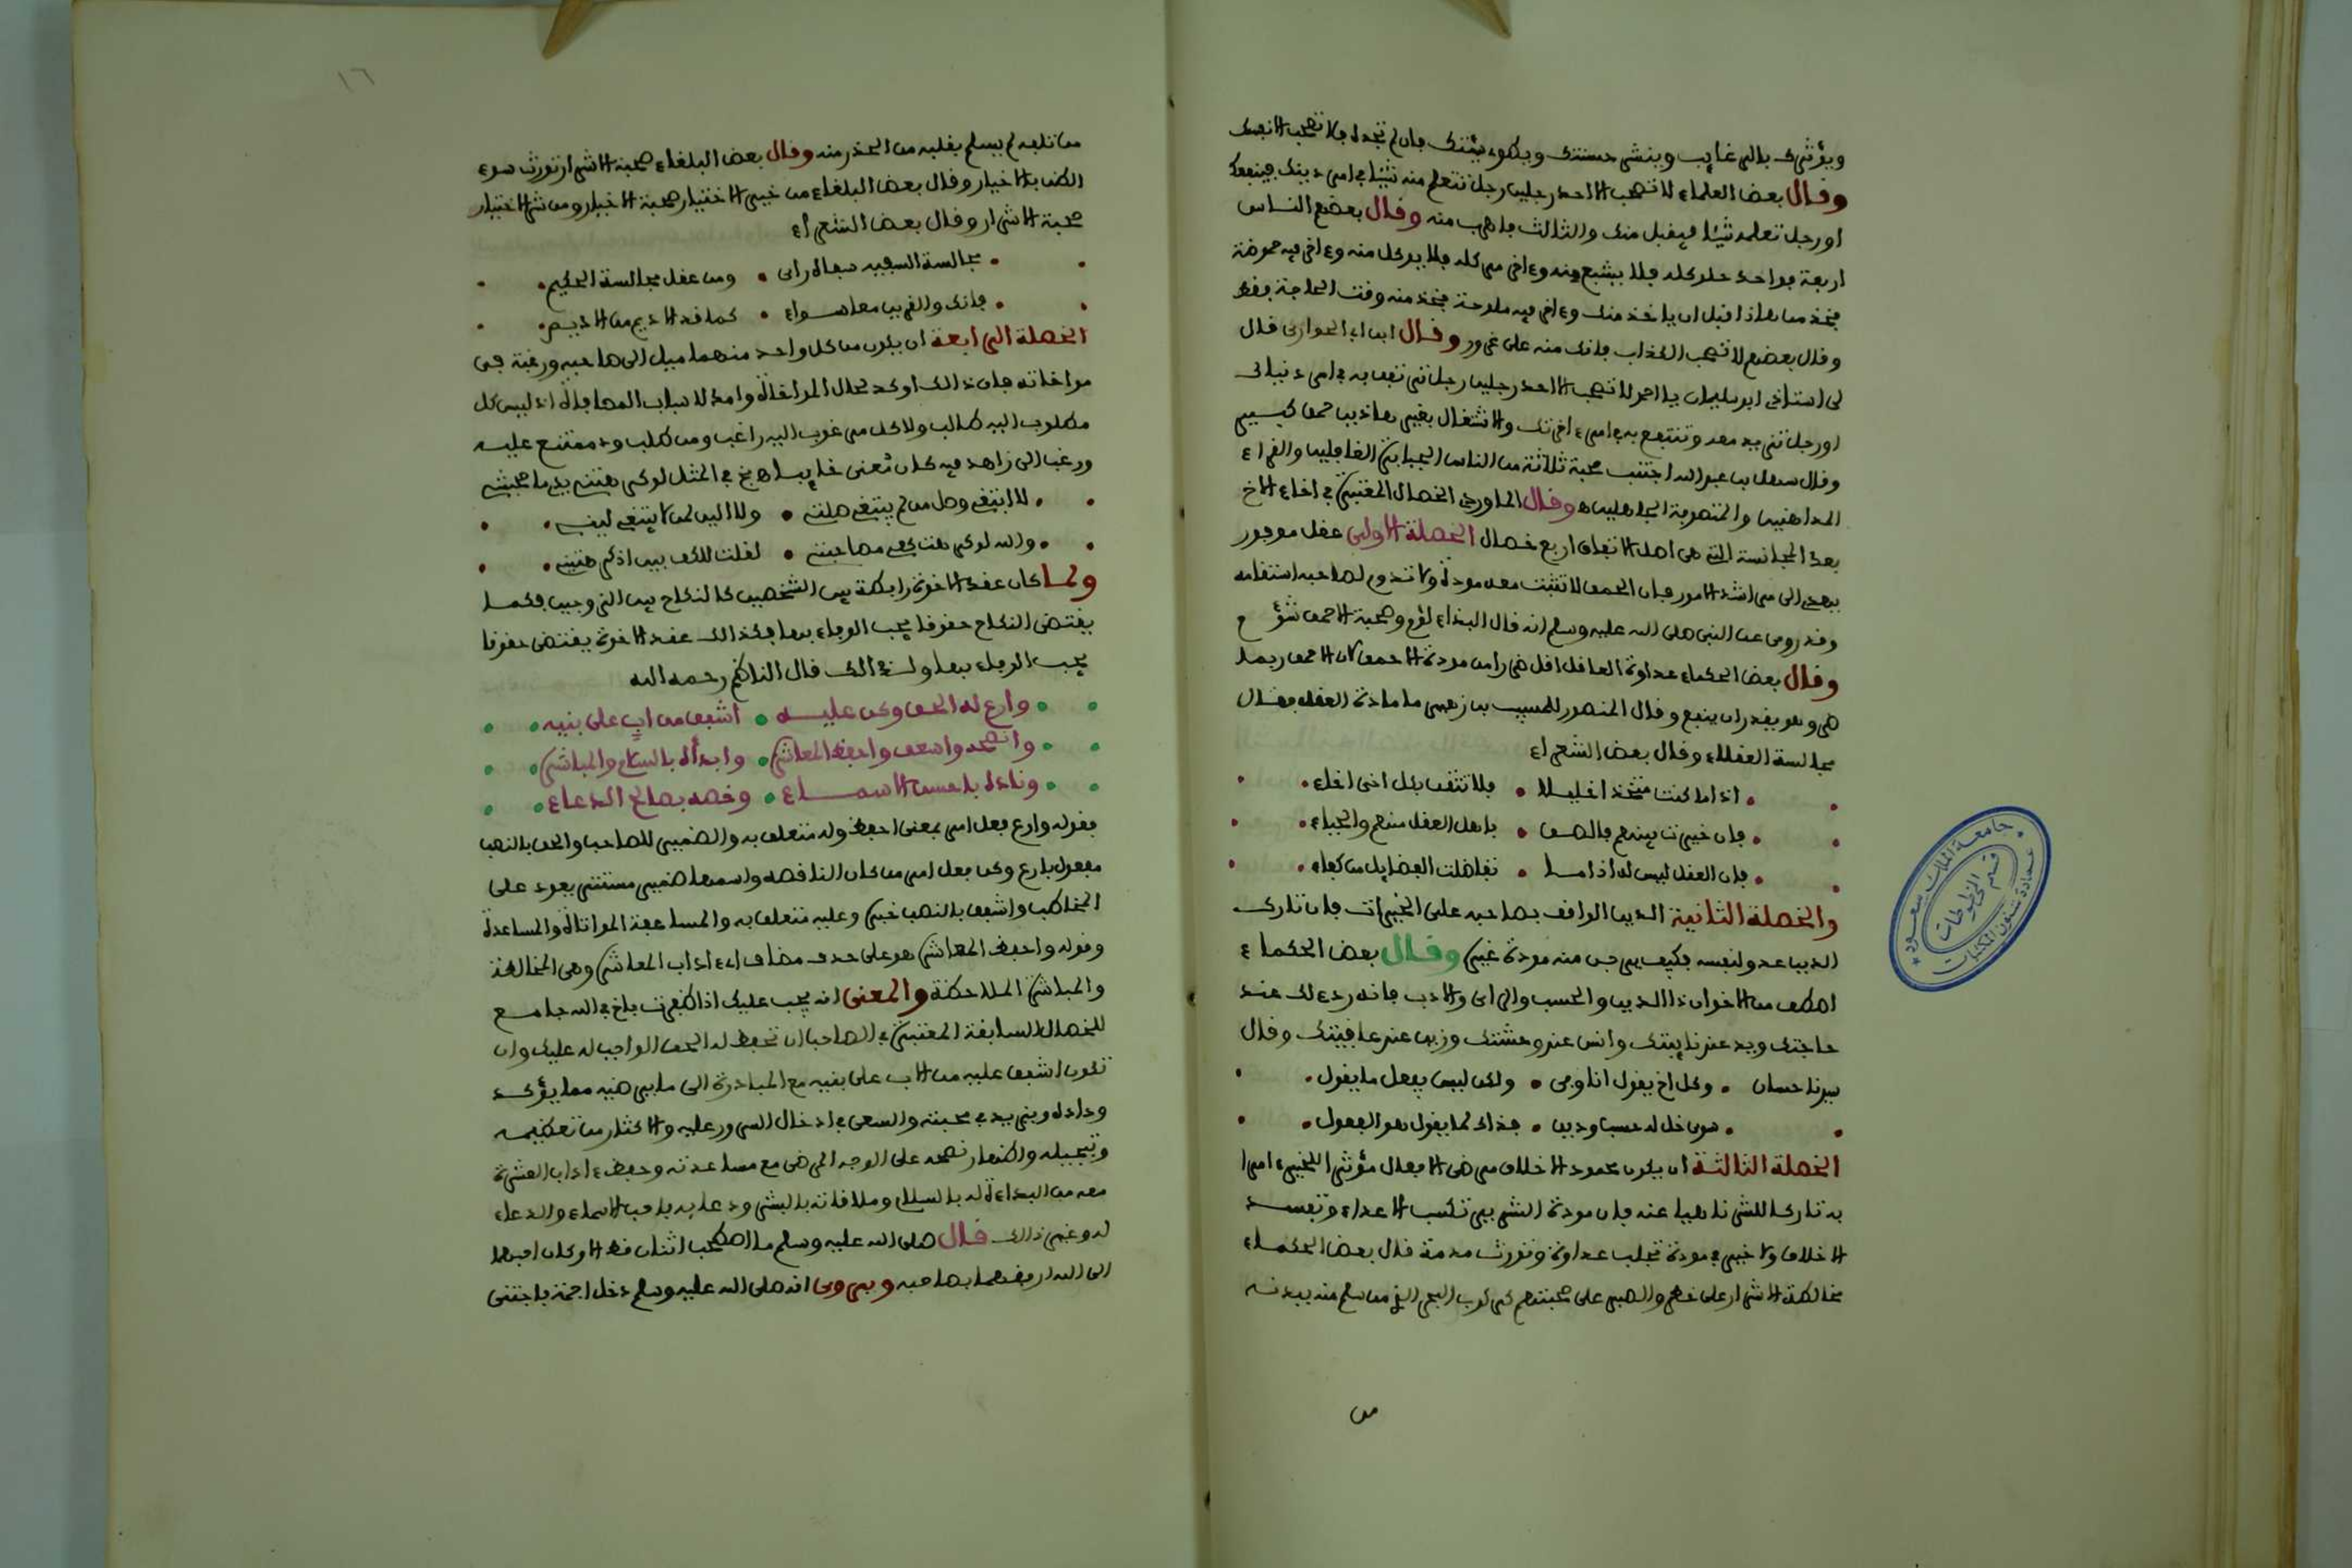 ويؤثرك بالرغايب وينشر حسنتك ويطوي سيئتك فان لم تجده فلا تصحب الا نفسك
وقال بعض العلماء لا تصحب الا احد رجلين رجل تتعلم منه شيئا في امر دينك فينفعك
او رجل تعلمه شيئا فيقبل منك والثالث فاهرب منه وقال بعضهم الناس
اربعة فواحد حلو كله فلا يشبع منه وءاخر مر كله فلا يوكل منه وءاخر فيه حموضة
فخذ من هاذا قبل ان ياخذ منك وءاخر فيه ملوحة فخذ منه وقت الحاجة فقط
وقال بعضهم لا تصحب الكذاب فانك منه على غرور وقال ابن ابي الحواري قال
لي استاذي ابو سليمان يا احمد لا تصحب الا احد رجلين رجل ترتفق به في امر دنياك
او رجل تزيد معه وتنتفع به في امر ءاخرتك والاشتغال بغير هاذين حمق كبير
وقال سهل بن عبد الله اجتنب صحبة ثلاثة من الناس الجبابرة الغافلين والقراء
المداهنين والمتصوفة الجاهلين وقال الماوردي الخصال المعتبرة في اخاء الاخ
بعد المجانسة التي هي اصل الاتفاق اربع خصال الخصلة الاولى عقل موفور
يهدي الى مراشد الامور فان الحمق لا تثبت معه مودة ولا تدوم لصاحبه استقامة
وقد روي عن النبي صلى الله عليه وسلم انه قال البذاء لؤم وصحبة الاحمق شؤم
وقال بعض الحكماء عداوة العاقل اقل ضررا من مودة الاحمق لان الاحمق ربما
ضر وهو يقدر ان ينفع وقال المنصور للمسيب بن زهير ما مادة العقل فقال
مجالسة العقلاء وقال بعض الشعراء
اذا ما كنت متخذا خليلا فلا تثقن بكل اخي اخاء
فان خيرت بينهم فالصق باهل العقل منهم والحياء
فان العقل ليس له اذا ما تفاضلت الفضايل من كفاء
والخصلة الثانية الدين الواقف بصاحبه على الخيرات فان تارك
الدين عدو لنفسه فكيف يرجى منه مودة غيره وقال بعض الحكماء
اصطف من الاخوان ذا الدين والحسب والراي والادب فانه ردء لك عند
حاجتك ويد عند نايبتك وانس عند وحشتك وزين عند عافيتك وقال
سيدنا حسان وكل اخ يقول انا وفي ولكن ليس يفعل ما يقول
سوى خل له حسب ودين فذاك لما يقول هو الفعول
الخصلة الثالثة ان يكون محمود الاخلاق مرضي الافعال مؤثرا للخير ءامرا
به تاركا للشر ناهيا عنه فان مودة الشرير تكسب الاعداء وتفسد
الاخلاق ولا خير في مودة تجلب عداوة وتورث مذمة قال بعض الحكماء
مخالطة الاشرار على خطر والصبر على صحبتهم كركوب البحر الذي من سلم منه ببدنه
من
١٦
من تلفه لم يسلم بقلبه من الحذر منه وقال بعض البلغاء صحبة الاشرار تورث سوء
الظن بالاخيار وقال بعض البلغاء من خير الاختيار صحبة الاخيار ومن شر الاختيار
صحبة الاشرار وقال بعض الشعراء
مجالسة السفيه سفاه راى ومن عقل مجالسة الحكيم
فانك والقرين معا سواء كما قد الاديم من الاديم
الخصلة الرابعة ان يكون من كل واحد منهما ميل الى صاحبه ورغبة في
مواخاته فان ذالك اوكد لحال المواخاة وامد لاسباب المصافاة اذ ليس كل
مطلوب اليه طالب ولا كل مرغوب اليه راغب ومن طلب ود ممتنع عليه
ورغب الى زاهد فيه كان معنى خايبا صح في المثل لو كرهتني يدي ما صحبتني
لا ابتغي وصل من لم يبتغي صلتي ولا الين لمن لا يبتغي ليني
والله لو كرهت كفي مصاحبتي لقلت للكف بيني اذ كرهتيني
ولما كان عقد الاخوة رابطة بين الشخصين كالنكاح بين الزوجين فكما
يقتضي النكاح حقوقا يجب الوفاء بها فكذالك عقد الاخوة يقتضي حقوقا
يجب الوفاء بها ولذالك قال الناظم رحمه الله
وارع له الحق وكن عليه اشفق من اب على بنيه
وانصحه واسعف واحفظ المعاشره وابدأه بالسلام والمباشره
وناده باحسن الاسماء وخصه بصالح الدعاء
فقوله وارع فعل امر بمعنى احفظ وله متعلق به والضمير للصاحب والحق بالنصب
مفعول بارع وكن فعل امر من كان الناقصه واسمها ضمير مستتر يعود على
المخاطب واشفق بالنصب خبره وعليه متعلق به والمساعفة المواتاة والمساعدة
وقوله واحفظ المعاشره هو على حدف مضاف اي ءاداب المعاشره وهي المخالطة
والمباشرة الملاحظة والمعنى انه يجب عليك اذا ظفرت باخ في الله جامع
للخصال السابقة المعتبرة في الصاحب ان تحفظ له الحق الواجب له عليك وان
تكون اشفق عليه من الاب على بنيه مع المبادرة الى ما يرضيه مما يؤكد
وداده ويزيد في محبته والسعي في ادخال السرور عليه والاكثار من تعظيمه
وتبجيله واظهار نصحه على الوجه المرضي مع مساعدته وحفظ ءاداب العشرة
معه من البداءة له بالسلام وملاقاته بالبشر ودعايه باحب الاسماء والدعاء
له وغير ذالك قال صلى الله عليه وسلم ما اصطحب اثنان قط الا وكان احبهما
الى الله ارفقهما بصاحبه ويروى انه صلى الله عليه وسلم دخل اجمة فاجتنى
جامعة الملك سعود
عمادة شئون المكتبات
قسم المخطوطات